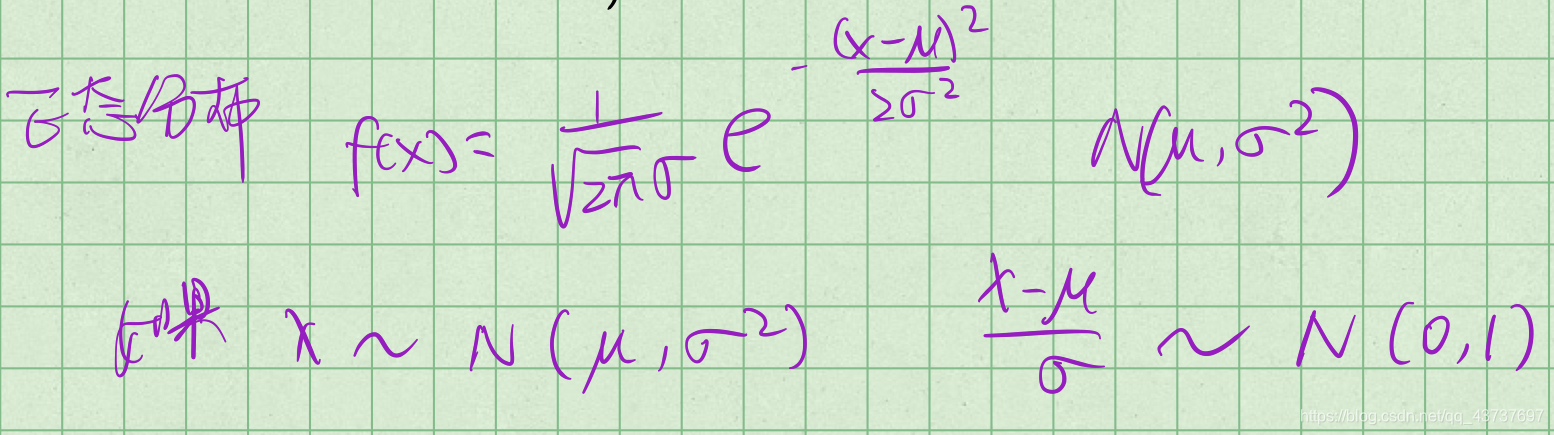 正态分布 f(x) = \frac{1}{\sqrt{2\pi}\sigma} e^{-\frac{(x-\mu)^2}{2\sigma^2}} N(μ, σ²)
x ~ N(μ, σ²) \frac{x-\mu}{\sigma} ~ N(0,1)
https://blog.csdn.net/qq_43737697